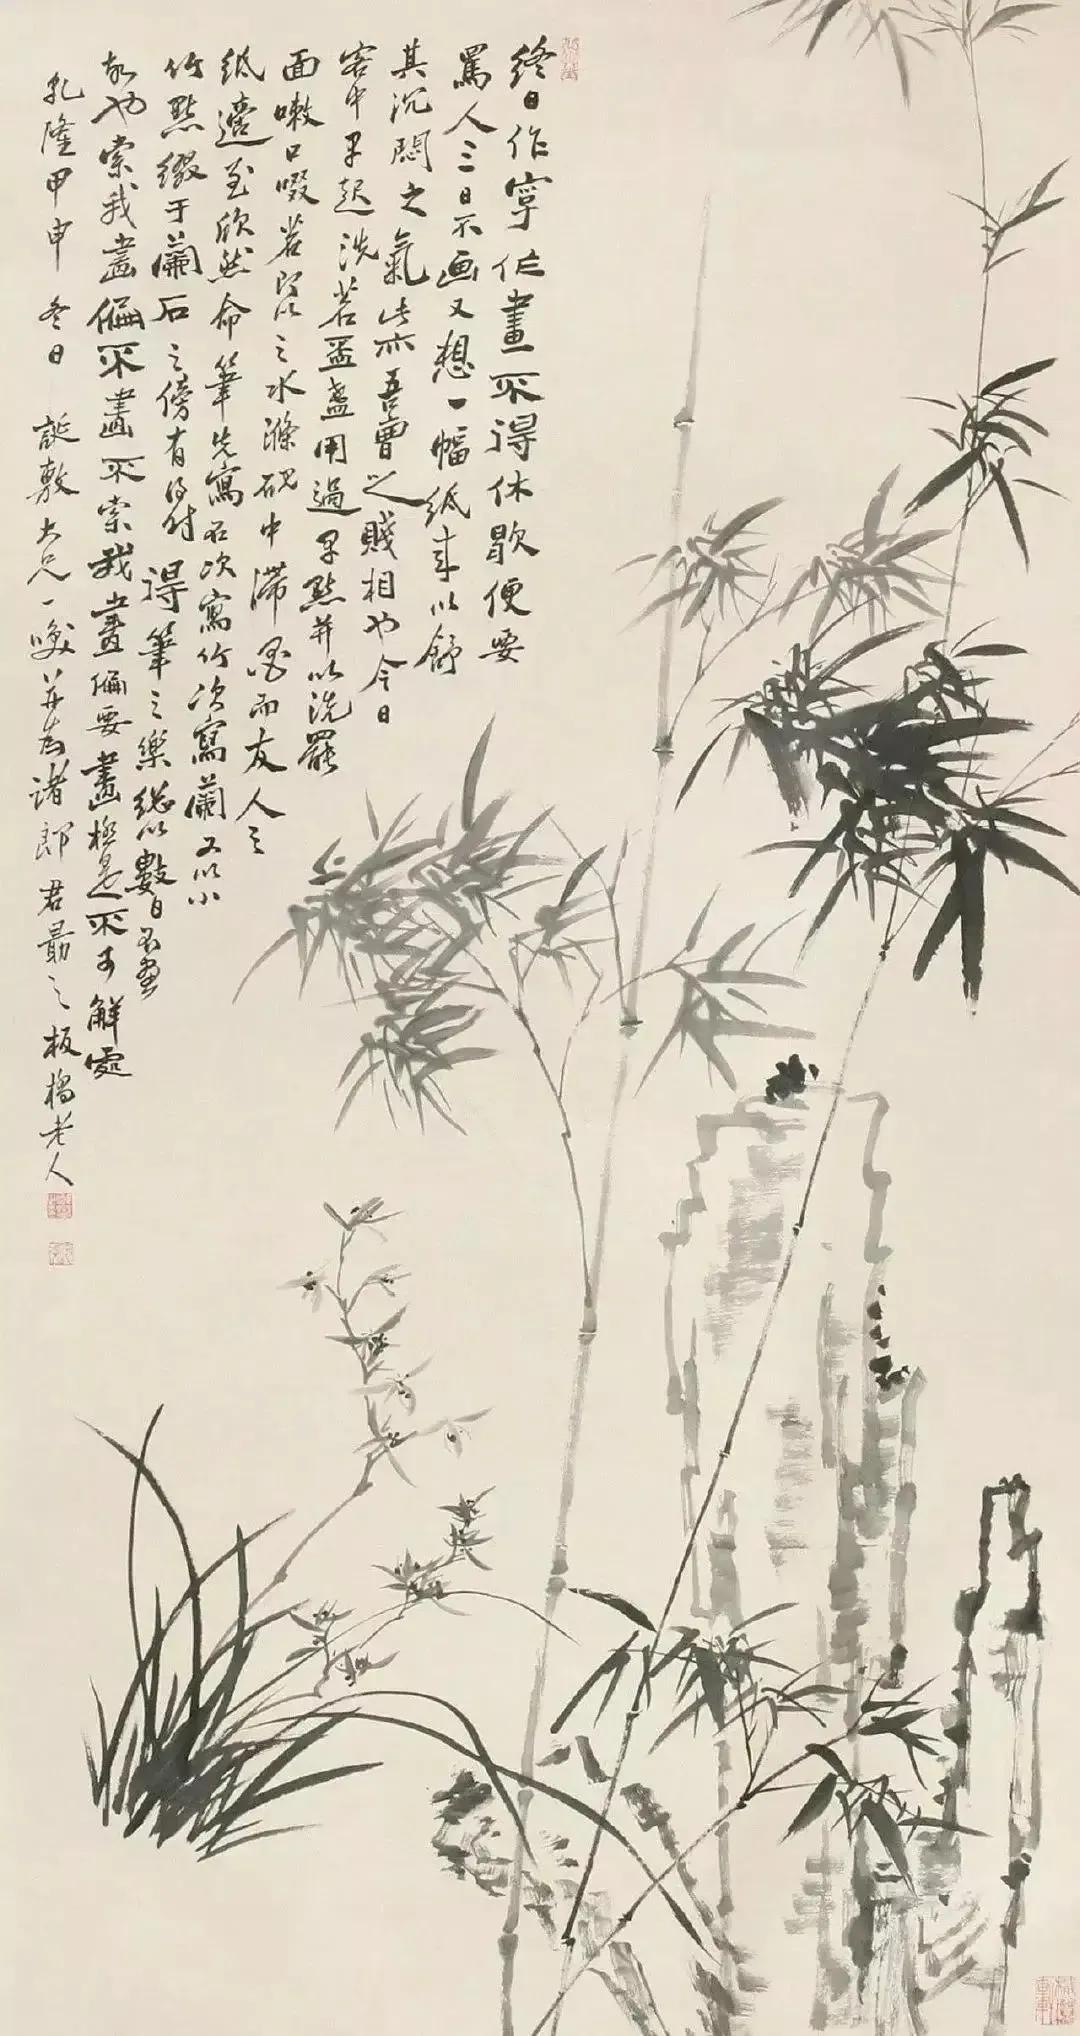 終日作字作畫不得休歇便要
罵人三日不画又想一幅紙來以舒
其沉悶之氣此亦吾曹之賤相也今日
客中早起洗茗盃盞用過早點并以洗罷
面嗽口啜茗之水滌硯中滯墨而友人之
紙適至欣然命筆先寫石次寫竹次寫蘭又以小
竹點綴于蘭石之傍有得時得筆之樂總以數日不畫
故也索我畫偏不畫不索我畫偏要畫極是不可解處
乾隆甲申冬日 誕敷大兄一并為諸郎君勗之板橋老人